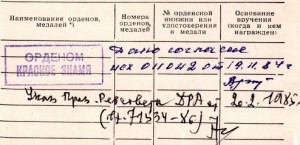 Наименование орденов, медалей *)
Номера орденов, медалей
№ орденской книжки или удостоверения к медали
Основание вручения (когда и кем награжден)
ОРДЕНОМ
КРАСНОЕ ЗНАМЯ
Дано согласие
исх 011042 от 19.11.84 г
Указ През. Ревсовета ДРА от 20.2.1985г.